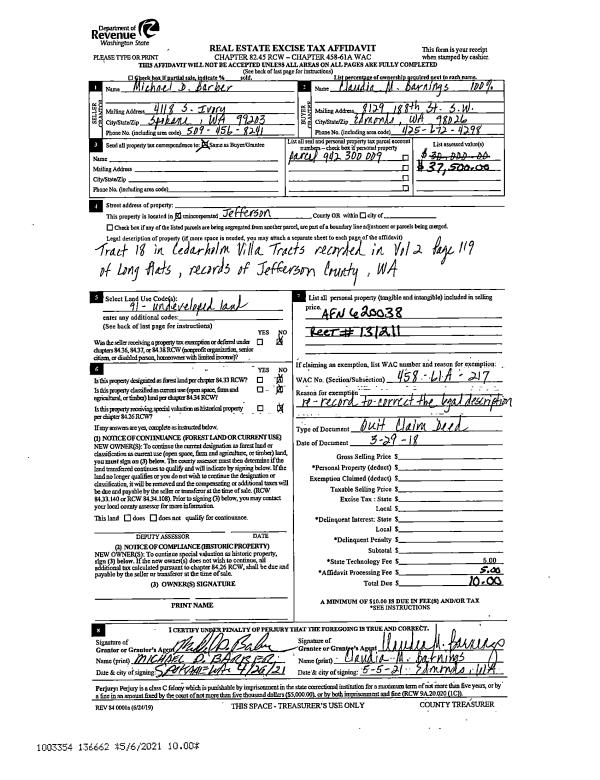 Department of
Revenue
Washington State
REAL ESTATE EXCISE TAX AFFIDAVIT
This form is your receipt
when stamped by cashier.
PLEASE TYPE OR PRINT
CHAPTER 82.45 RCW – CHAPTER 458-61A WAC
THIS AFFIDAVIT WILL NOT BE ACCEPTED UNLESS ALL AREAS ON ALL PAGES ARE FULLY COMPLETED
(See back of last page for instructions)
Check box if partial sale, indicate % sold.
List percentage of ownership acquired next to each name.
1 Name Michael D. Barber
2 Name Claudia M. Barnings 100%
SELLER GRANTOR
BUYER GRANTEE
Mailing Address 4118 S. Ivory
Mailing Address 8129 188th St. S.W.
City/State/Zip Spokane, WA 99203
City/State/Zip Edmonds, WA 98026
Phone No. (including area code) 509-456-8241
Phone No. (including area code) 425-672-4298
3 Send all property tax correspondence to: Same as Buyer/Grantee
List all real and personal property tax parcel account
numbers – check box if personal property
List assessed value(s)
Name
parcel 942 300 009
$ 30,000.00
Mailing Address
$ 37,500.00
City/State/Zip
Phone No. (including area code)
4 Street address of property:
This property is located in unincorporated Jefferson County OR within city of
Check box if any of the listed parcels are being segregated from another parcel, are part of a boundary line adjustment or parcels being merged.
Legal description of property (if more space is needed, you may attach a separate sheet to each page of the affidavit)
Tract 18 in Cedarholm Villa Tracts recorded in Vol 2 Page 119
of Long Plats, records of Jefferson County, WA
5 Select Land Use Code(s):
91 - undeveloped land
enter any additional codes:
(See back of last page for instructions)
YES NO
Was the seller receiving a property tax exemption or deferral under
chapters 84.36, 84.37, or 84.38 RCW (nonprofit organization, senior
citizen, or disabled person, homeowner with limited income)?
6 YES NO
Is this property designated as forest land per chapter 84.33 RCW?
Is this property classified as current use (open space, farm and
agricultural, or timber) land per chapter 84.34 RCW?
Is this property receiving special valuation as historical property
per chapter 84.26 RCW?
If any answers are yes, complete as instructed below.
(1) NOTICE OF CONTINUANCE (FOREST LAND OR CURRENT USE)
NEW OWNER(S): To continue the current designation as forest land or
classification as current use (open space, farm and agriculture, or timber) land,
you must sign on (3) below. The county assessor must then determine if the
land transferred continues to qualify and will indicate by signing below. If the
land no longer qualifies or you do not wish to continue the designation or
classification, it will be removed and the compensating or additional taxes will
be due and payable by the seller or transferor at the time of sale. (RCW
84.33.140 or RCW 84.34.108). Prior to signing (3) below, you may contact
your local county assessor for more information.
This land does does not qualify for continuance.
DEPUTY ASSESSOR DATE
(2) NOTICE OF COMPLIANCE (HISTORIC PROPERTY)
NEW OWNER(S): To continue special valuation as historic property,
sign (3) below. If the new owner(s) does not wish to continue, all
additional tax calculated pursuant to chapter 84.26 RCW, shall be due and
payable by the seller or transferor at the time of sale.
(3) OWNER(S) SIGNATURE
PRINT NAME
7 List all personal property (tangible and intangible) included in selling
price.
AFN 620038
REET # 131211
If claiming an exemption, list WAC number and reason for exemption:
WAC No. (Section/Subsection) 458-61A-217
Reason for exemption
re-record to correct the legal description
Type of Document Quit Claim Deed
Date of Document 3-29-18
Gross Selling Price $
*Personal Property (deduct) $
Exemption Claimed (deduct) $
Taxable Selling Price $
Excise Tax : State $
Local $
*Delinquent Interest: State $
Local $
*Delinquent Penalty $
Subtotal $
*State Technology Fee $ 5.00
*Affidavit Processing Fee $ 5.00
Total Due $ 10.00
A MINIMUM OF $10.00 IS DUE IN FEE(S) AND/OR TAX
*SEE INSTRUCTIONS
8 I CERTIFY UNDER PENALTY OF PERJURY THAT THE FOREGOING IS TRUE AND CORRECT.
Signature of
Grantor or Grantor's Agent
Signature of
Grantee or Grantee's Agent Claudia M. Barnings
Name (print) MICHAEL D. BARBER
Name (print) Claudia M. Barnings
Date & city of signing: SPOKANE WA 4/26/21
Date & city of signing: 5-5-21 Edmonds, WA
Perjury: Perjury is a class C felony which is punishable by imprisonment in the state correctional institution for a maximum term of not more than five years, or by
a fine in an amount fixed by the court of not more than five thousand dollars ($5,000.00), or by both imprisonment and fine (RCW 9A.20.020 (1C)).
REV 84 0001a (6/24/19)
THIS SPACE - TREASURER'S USE ONLY
COUNTY TREASURER
1003354 136662 *5/6/2021 10.00*